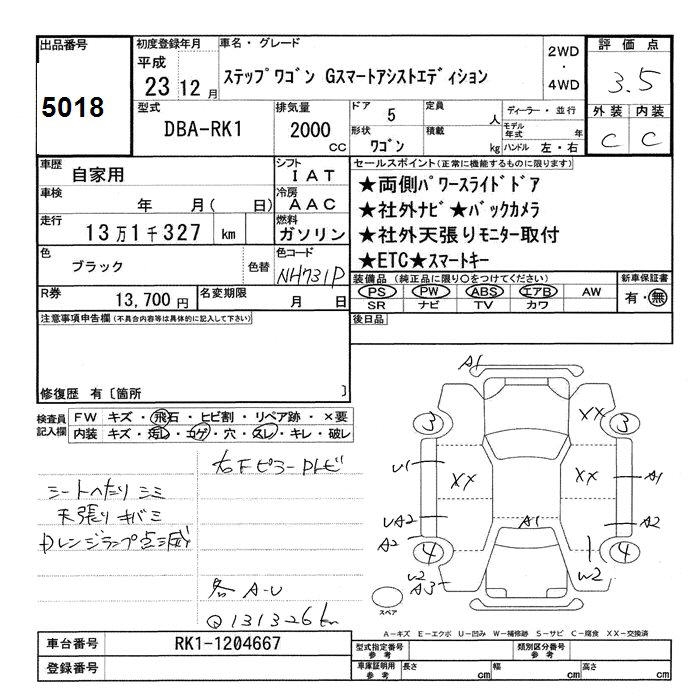 出品番号 初度登録年月 車名・グレード 2WD・4WD 評価点
5018 平成 23 12月 ステップワゴン Gスマートアシストエディション 3.5
型式 排気量 ドア 5 定員 人 ディーラー・並行 外装 内装
DBA-RK1 2000 CC 形状 ワゴン 積載 kg モデル年式 年 ハンドル 左・右 C C
車歴 自家用 シフト IAT セールスポイント(正常に機能するものに限ります)
車検 年 月( 日) 冷房 AAC ★両側パワースライドドア
走行 13万1千327 km 燃料 ガソリン ★社外ナビ★バックカメラ
★社外天張りモニター取付
色 ブラック 色替 色コード NH731P ★ETC★スマートキー
R券 13,700円 名変期限 月 日
装備品(純正品に限り○をつけてください) 新車保証書
PS PW ABS エアB AW 有・無
SR ナビ TV カワ
注意事項申告欄(不具合内容等は具体的に記入して下さい) 後日品
修復歴 有〔箇所 〕
検査員記入欄 FW キズ・飛石・ヒビ割・リペア跡・×要
内装 キズ・汚レ・コゲ・穴・スレ・キレ・破レ
右Fピラー
シートへたり シミ
天張り キバミ
Dレンジランプ点滅
各 A-U
131326
A1
3 XX 3
U1 XX XX A1
UA2 A1 A2
A2 4 4
W2 A3 W2
スペア
A-キズ E-エクボ U-凹み W-補修跡 S-サビ C-腐食 XX-交換済
車台番号 RK1-1204667 型式指定番号 参考 類別区分番号 参考
登録番号 車庫証明用 参考 長さ cm 幅 cm 高さ cm